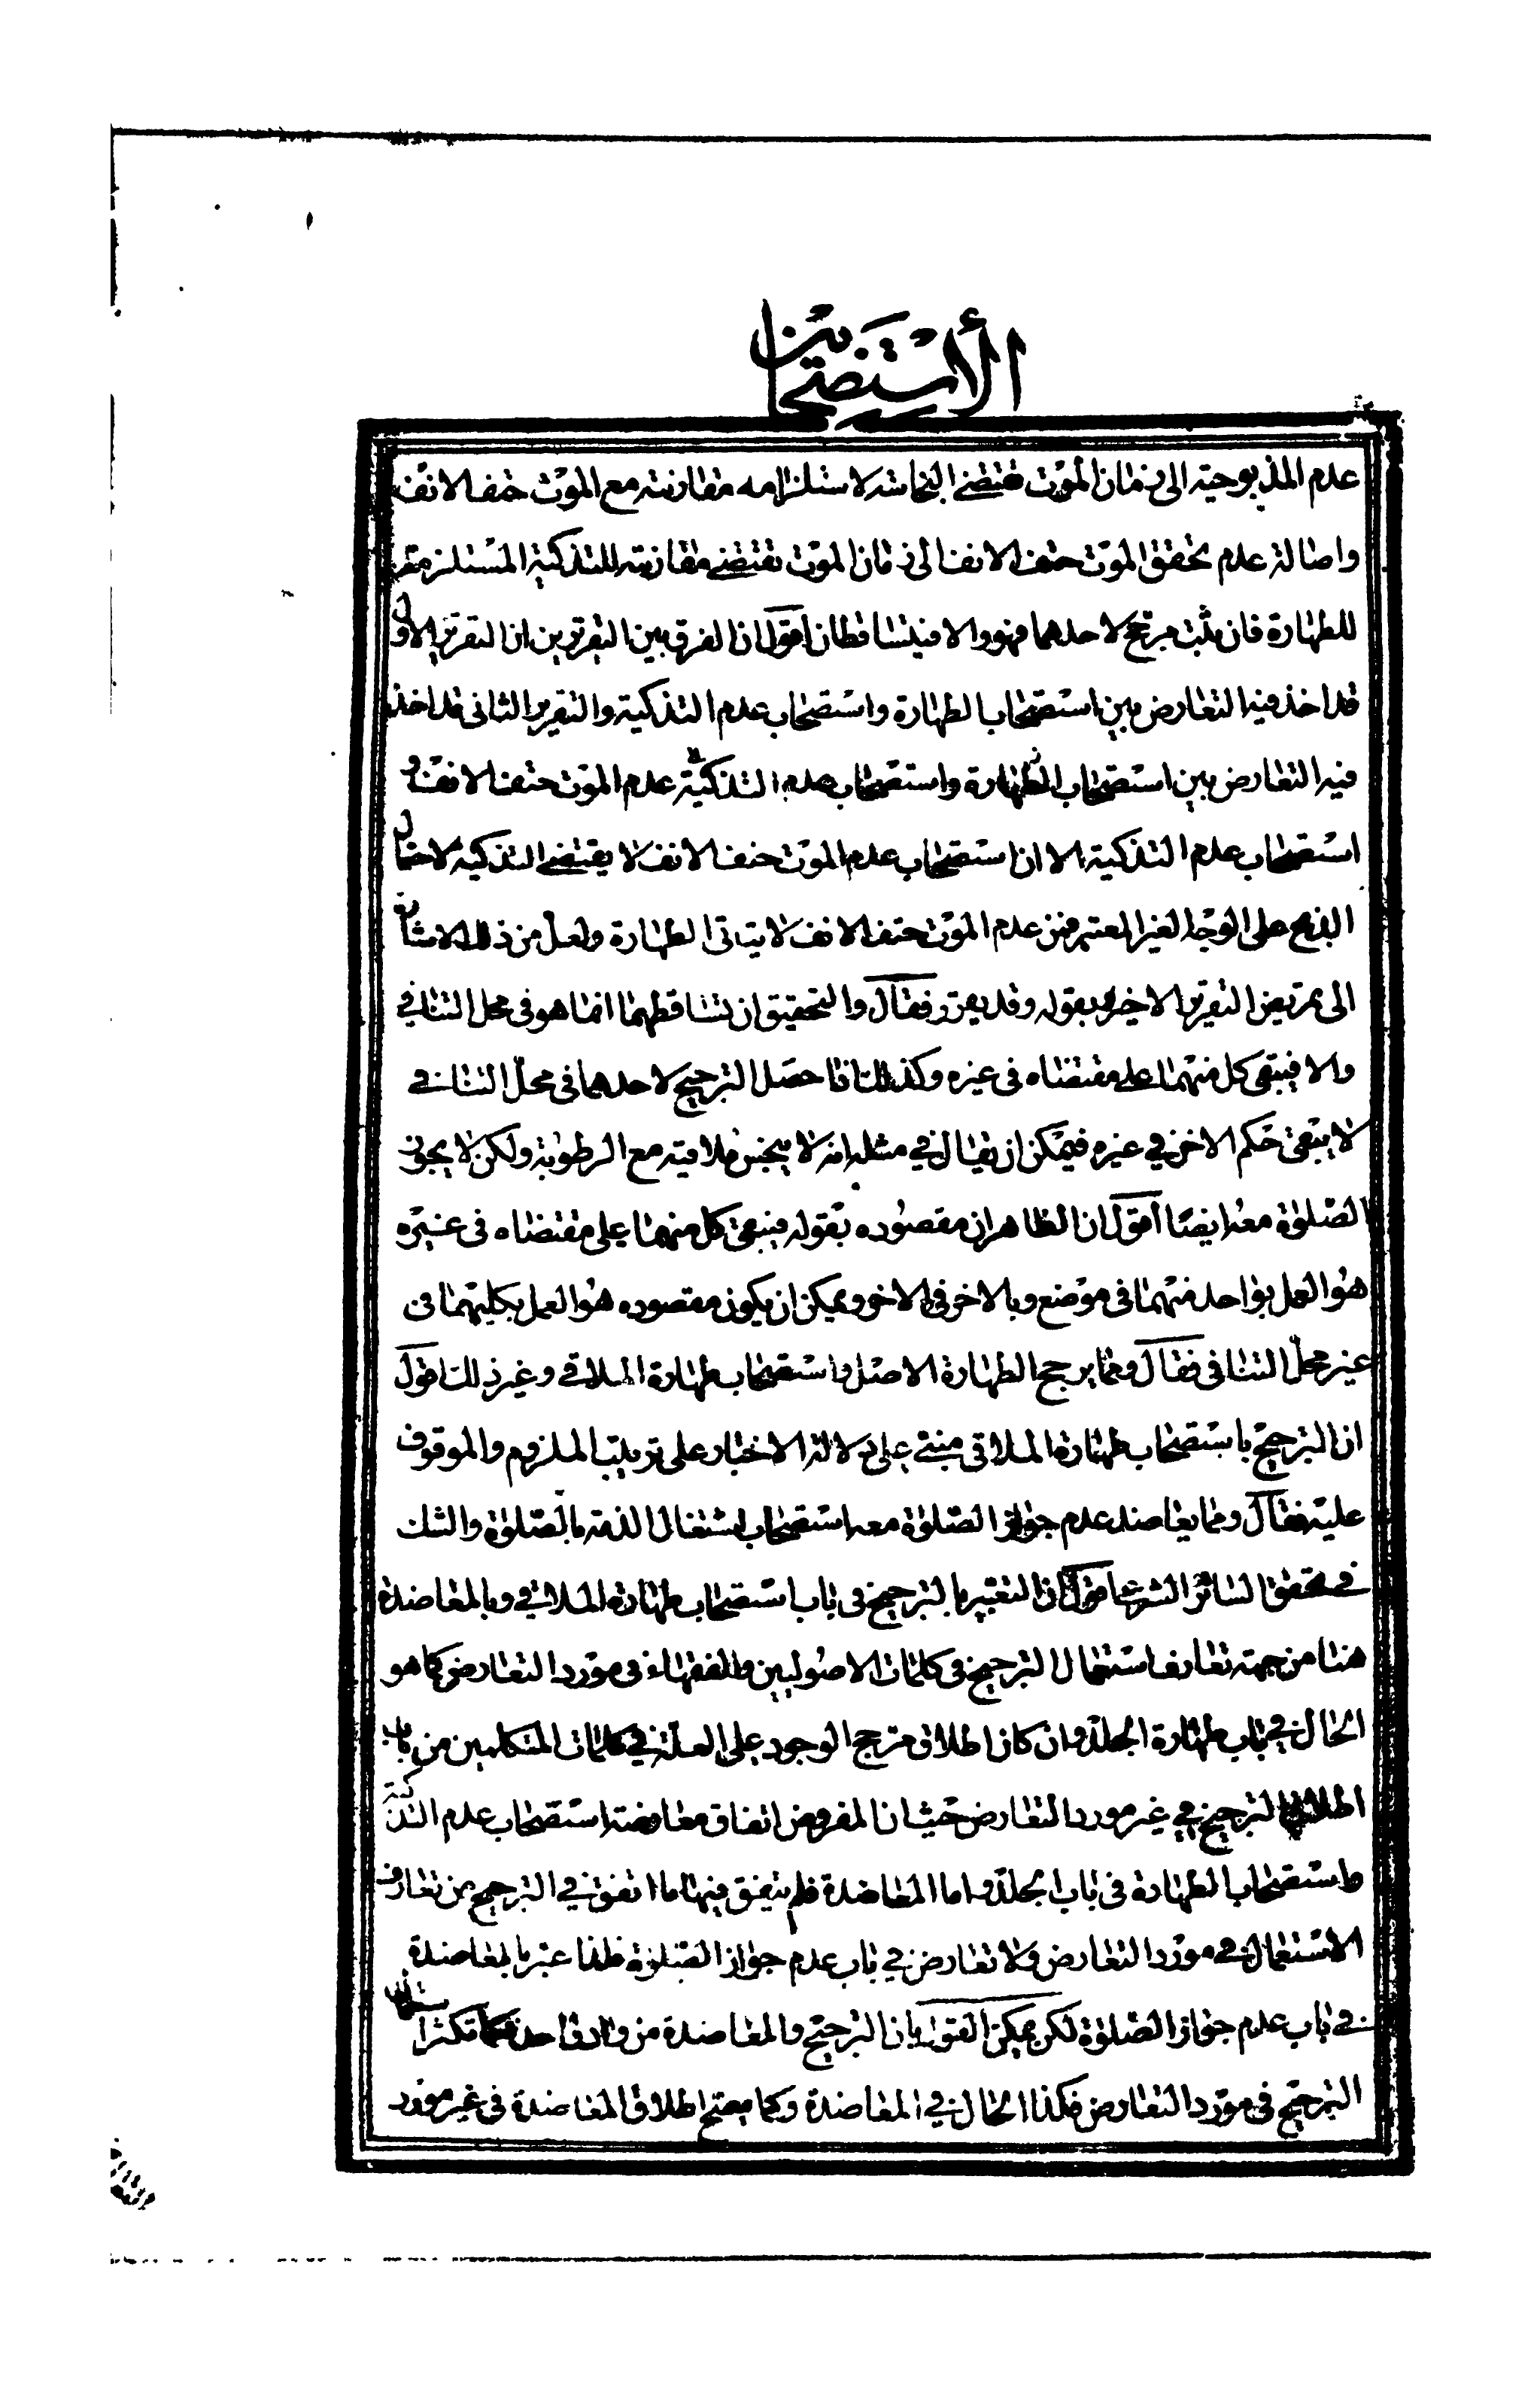 الأستصحابين
عدم المذبوحية الى زمان الموت تقتضى النجاسة لاستلزامه مقارنته مع الموت حتف الانف
واصالة عدم تحقق الموت حتف الانف الى زمان الموت تقتضى مقارنته للتذكية المستلزمة
للطهارة فان ثبت مرجح لاحدهما فهو والا فيتساقطان اقول ان الفرق بين التقريرين ان التقرير الاول
قد اخذ فيه التعارض بين استصحاب الطهارة واستصحاب عدم التذكية والتقرير الثانى قد اخذ
فيه التعارض بين استصحاب الطهارة واستصحاب عدم التذكية عدم الموت حتف الانف و
استصحاب عدم التذكية الا ان استصحاب عدم الموت حتف الانف لا يقتضى التذكية لاحتمال
الذبح على الوجه الغير المعتبر فمن عدم الموت حتف الانف لا يتاتى الطهارة ولعل من ذلك الاشارة
الى تمريض التقرير الاخير بقوله وقد يقرر فقال والتحقيق ان تساقطهما انما هو فى محل التنافى
والا فيبقى كل منهما على مقتضاه فى غيره وكذلك اذا حصل الترجيح لاحدهما فى محل التنافى
لا يبقى حكم الاخر فى غيره فيمكن ان يقال فى مثله انه لا ينجس ملاقيه مع الرطوبة ولكن لا يجوز
الصلوة معه ايضا اقول ان الظاهر ان مقصوده بقوله فيبقى كل منهما على مقتضاه فى غيره
هو العمل بواحد منهما فى موضع وبالاخر فى الاخر ويمكن ان يكون مقصوده هو العمل بكليهما فى
غير محل التنافى فقال ومما يرجح الطهارة الاصل واستصحاب طهارة الملاقى وغير ذلك اقول
ان الترجيح باستصحاب طهارة الملاقى مبنى على دلالة الاخبار على ترتيب الملزوم والموقوف
عليه فقال ومما يعاضد عدم جواز الصلوة معه استصحاب اشتغال الذمة بالصلوة والشك
فى تحقق الساتر الشرعى اقول ان التعبير بالترجيح فى باب استصحاب طهارة الملاقى وبالمعاضدة
هنا من جهة تعارف استعمال الترجيح فى كلمات الاصوليين والفقهاء فى مورد التعارض كما هو
الحال فى باب طهارة الجلد وان كان اطلاق مرجح الوجود على العلة فى كلمات المتكلمين من باب
اطلاق الترجيح فى غير مورد التعارض حيث ان المفروض اتفاق معارضة استصحاب عدم التذكية
واستصحاب الطهارة فى باب الجلد واما المعاضدة فلم يتفق فيها ما اتفق فى الترجيح من تعارف
الاستعمال فى مورد التعارض ولا تعارض فى باب عدم جواز الصلوة فلذا عبر بالمعاضدة
فى باب عدم جواز الصلوة لكن يمكن القول بان الترجيح والمعاضدة من واد واحد فكما تكثر استعمال
الترجيح فى مورد التعارض فكذا الحال فى المعاضدة وكما يصح اطلاق المعاضدة فى غير مورد